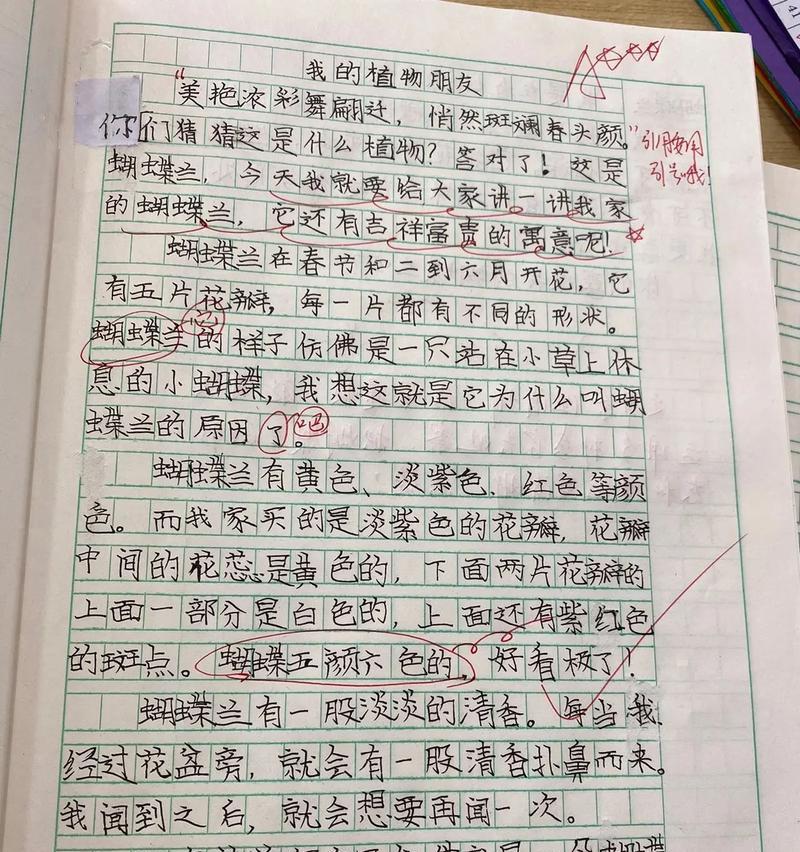 我的植物朋友
A
“美艳浓彩舞翩迁，悄然斑斓春头颜。”
你们猜猜这是什么植物？答对了！这是
引用要用
引号哦！
蝴蝶兰，今天我就要给大家讲一讲我家
的蝴蝶兰，它还有吉祥富贵的寓意呢！
蝴蝶兰在春节和二到六月开花，它
有五片花瓣，每一片都有不同的形状。
蝴蝶兰的样子仿佛是一只站在小草上休
息的小蝴蝶，我想这就是它为什么叫蝴
蝶兰的原因了。
吧
蝴蝶兰有黄色、淡紫色、红色等颜
色。而我家买的是淡紫色的花瓣，花瓣
中间的花蕊是黄色的，下面两片花瓣的
上面一部分是白色的，上面还有紫红色
的斑点。蝴蝶五颜六色的，好看极了！
蝴蝶兰有一股淡淡的清香。每当我
经过花盆旁，就会有一股清香扑鼻而来。
我闻到之后，就会想要再闻一次。